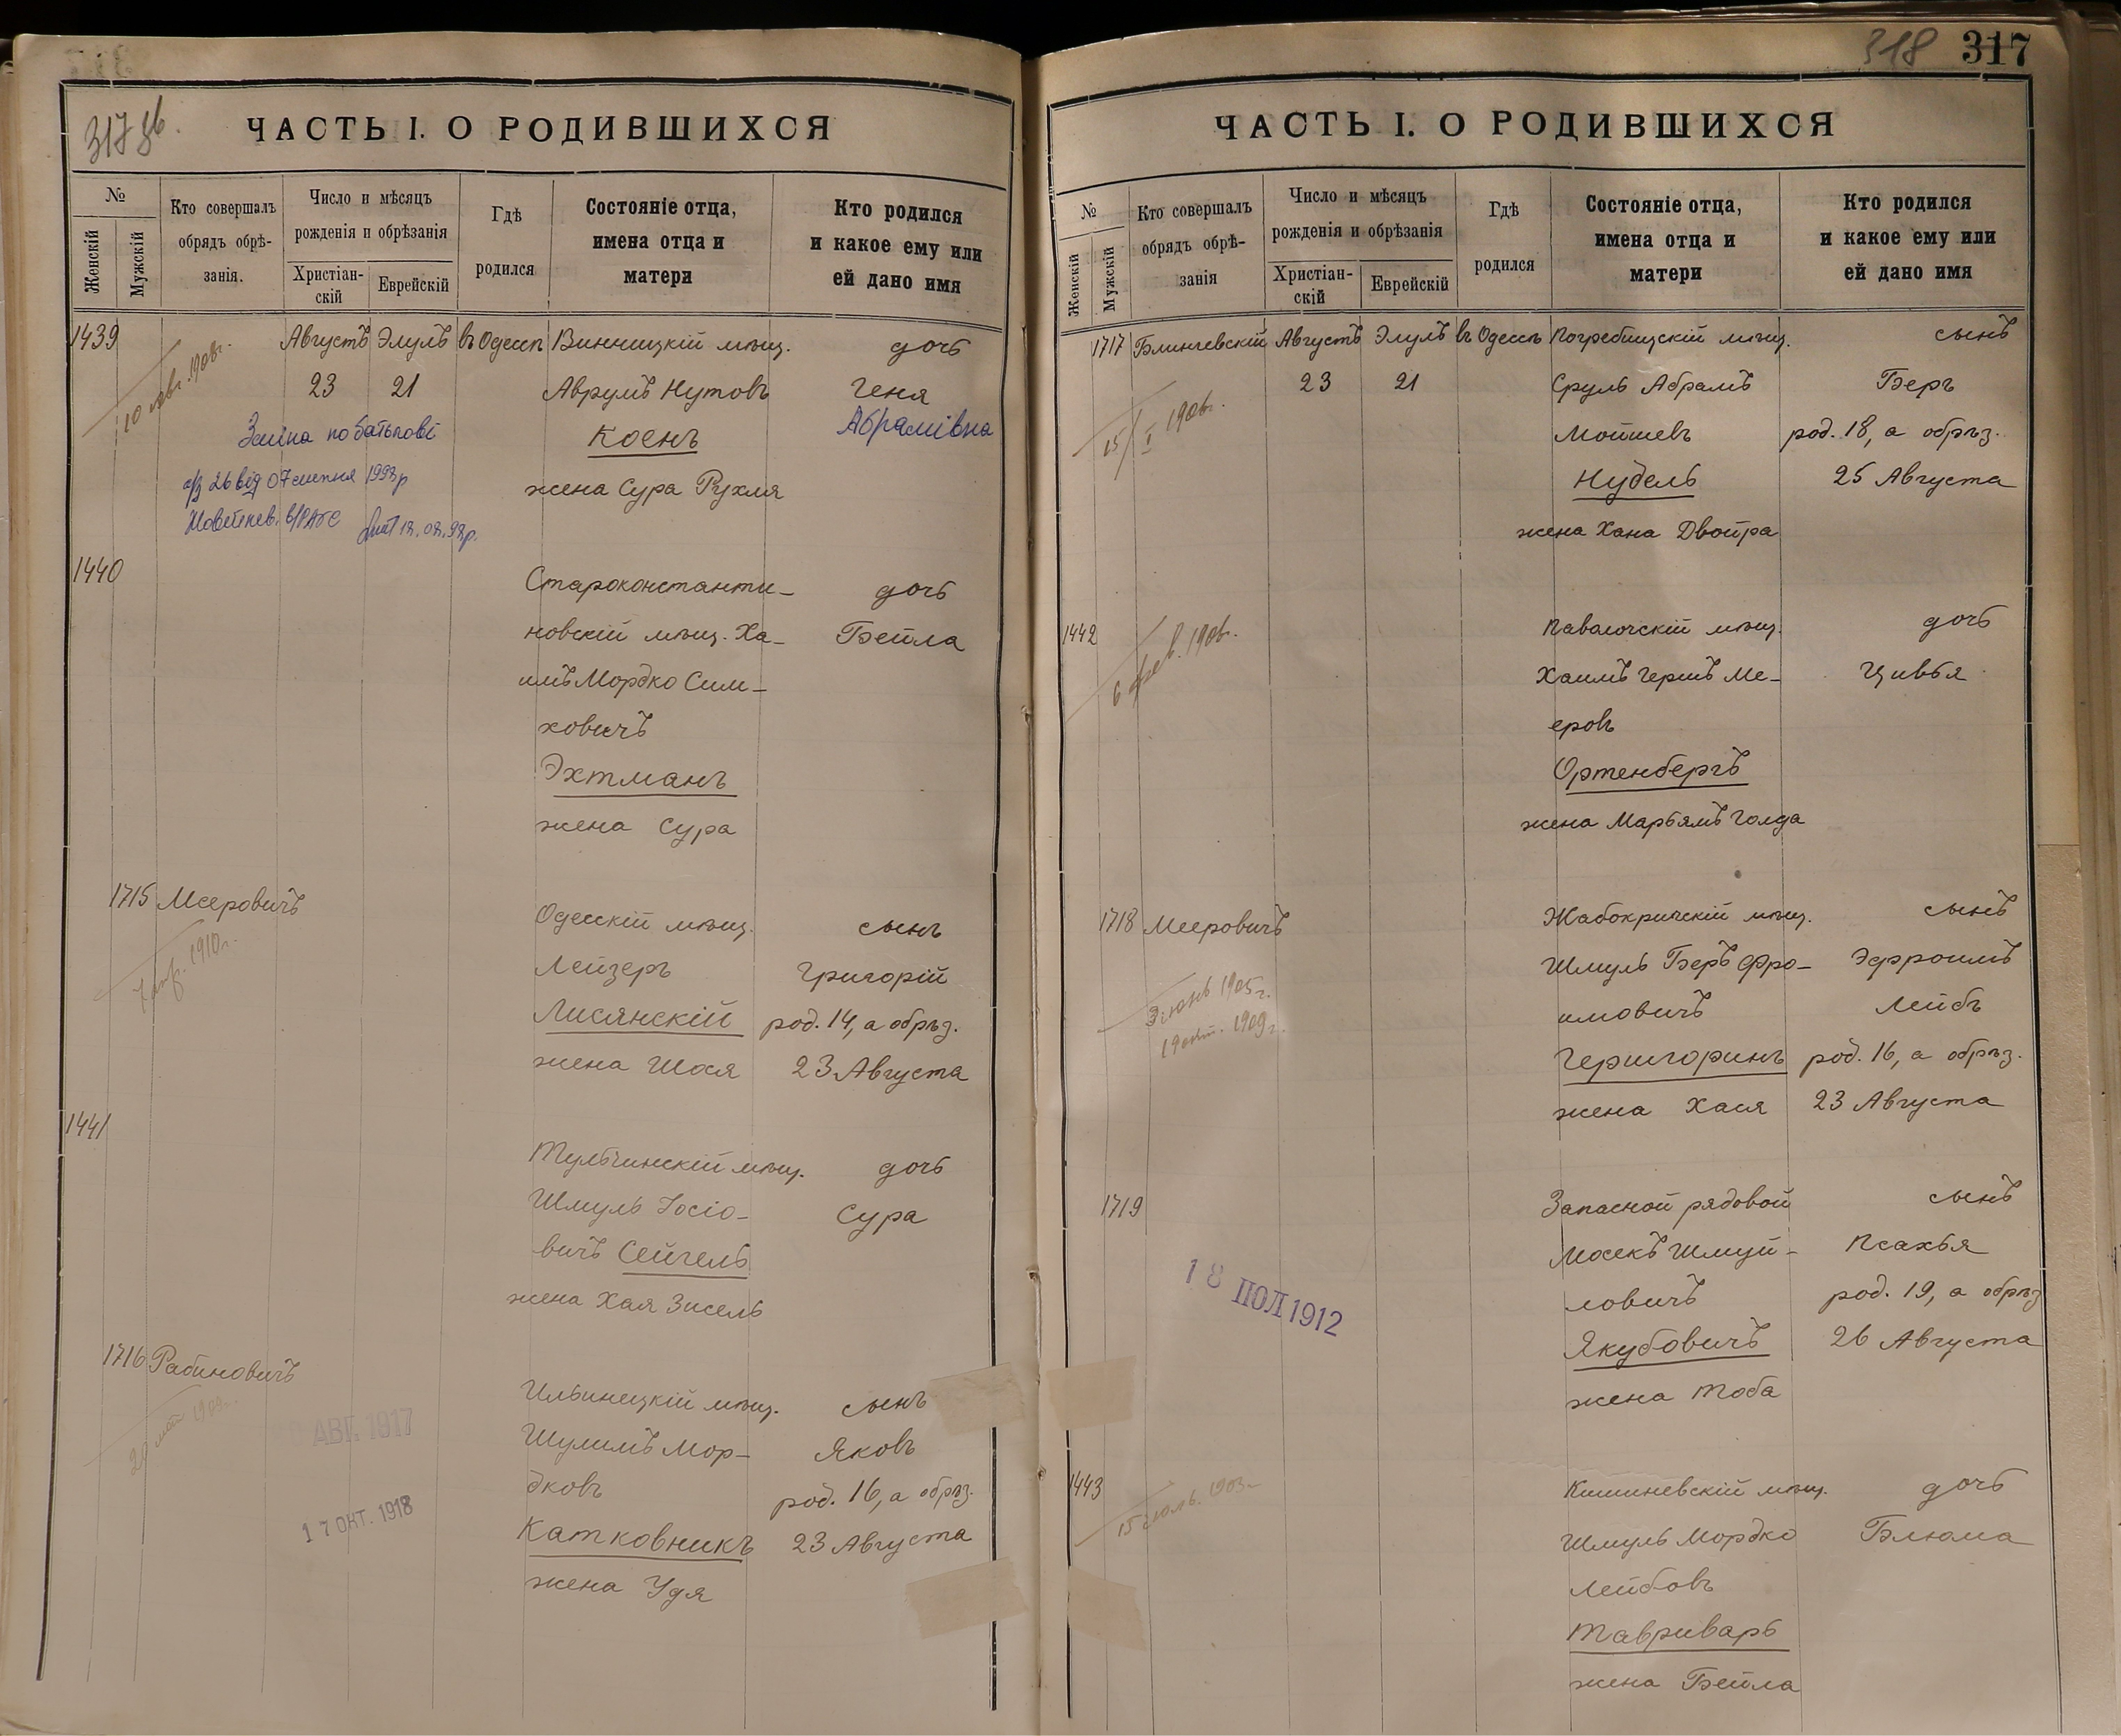 317 зв.
ЧАСТЬ I. О РОДИВШИХСЯ
№
Женскій
Мужскій
Кто совершалъ
обрядъ обрѣ-
занія.
Число и мѣсяцъ
рожденія и обрѣзанія
Христіан-
скій
Еврейскій
Гдѣ
родился
Состояніе отца,
имена отца и
матери
Кто родился
и какое ему или
ей дано имя
1439 Августъ Элулъ въ Одессѣ Винницкій мѣщ. дочь
23 21 Аврумъ Нутовъ Геня
Зміна по батькові Коенъ Абрамівна
а/з 26 від 07 1993р жена Сура Рухля
1440 Староконстанти- дочь
новскій мѣщ. Ха- Бейла
имъ Мордко Сим-
ховичъ
Эхтманъ
жена Сура
1715 Мееровичъ Одесскій мѣщ. сынъ
1910г. Лейзеръ Григорій
Лисянскій род. 14, а обрѣз.
жена Шося 23 Августа
1441 Тульчинскій мѣщ. дочь
Шмуль Іосіо- Сура
вичъ Сейгель
жена Хая Зисель
1716 Рабиновичъ Ильинецкій мѣщ. сынъ
АВГ. 1917 Шулимъ Мор- Яковъ
дковъ род. 16, а обрѣз.
17 ОКТ. 1918 Катковникъ 23 Августа
жена Удя
318 317
ЧАСТЬ I. О РОДИВШИХСЯ
№
Женскій
Мужскій
Кто совершалъ
обрядъ обрѣ-
занія
Число и мѣсяцъ
рожденія и обрѣзанія
Христіан-
скій
Еврейскій
Гдѣ
родился
Состояніе отца,
имена отца и
матери
Кто родился
и какое ему или
ей дано имя
1717 Блингевскій Августъ Элулъ въ Одессѣ Погребищскій мѣщ. сынъ
23 21 Сруль Абрамъ Беръ
15/I 1906г. Мошкевъ род. 18, а обрѣз.
Нудель 25 Августа
жена Хана Двойра
1442 Паволочскій мѣщ. дочь
6 фев. 1906г. Хаимъ Гершъ Ме- Цивья
еровъ
Ортенбергъ
жена Марьямъ Голда
1718 Мееровичъ Жабокричскій мѣщ. сынъ
Шмуль Беръ Фро- Эфроимъ
3 іюнь 1905г. имовичъ Лейбъ
19 окт. 1909г. Гершгоринъ род. 16, а обрѣз.
жена Хася 23 Августа
1719 Запасной рядовой сынъ
Мосекъ Шмуй- Псахья
18 ІЮЛ 1912 ловичъ род. 19, а обрѣз
Якубовичъ 26 Августа
жена Тоба
1443 Кишиневскій мѣщ. дочь
Шмуль Мордко Блюма
Лейбовъ
Тавриварь
жена Бейла